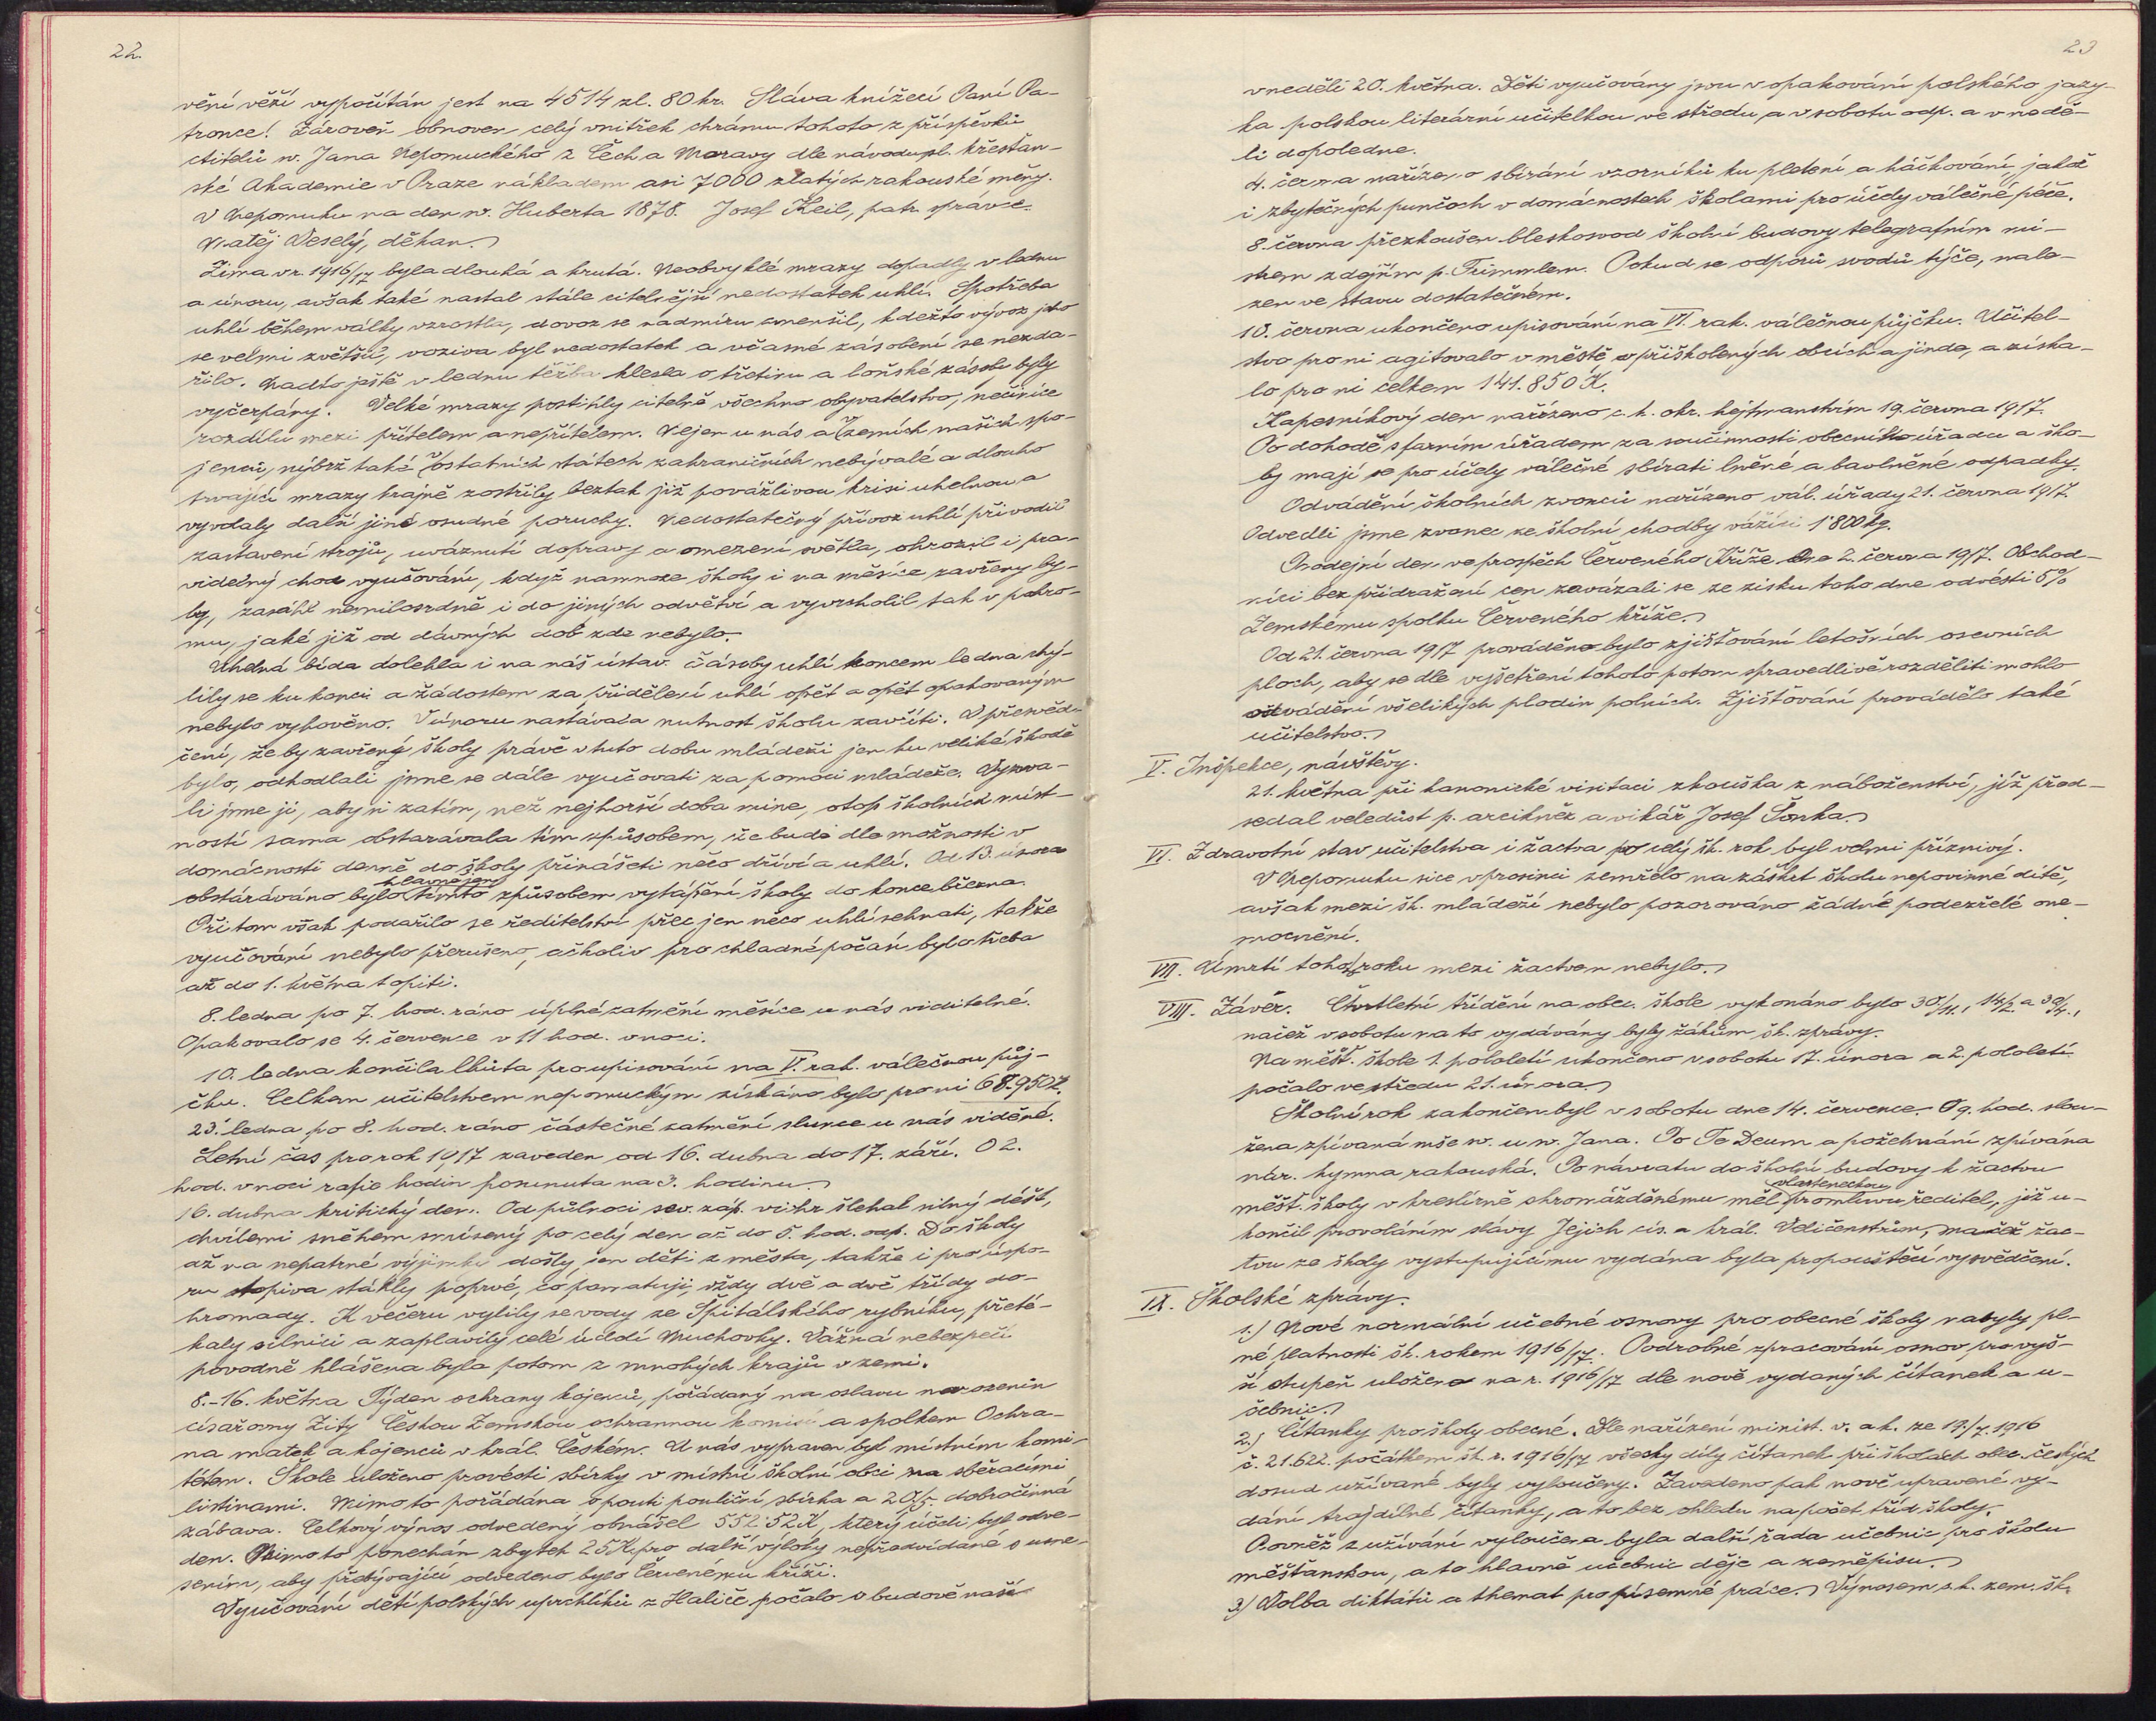 22.
vění věží vypočítán jest na 4514 zl. 80 kr. Sláva knížecí Paní Pa-
tronce! Zároveň obnoven celý vnitřek chrámu tohoto z příspěvků
ctitelů sv. Jana Nepomuckého z Čech a Moravy dle návodu sl. křesťan-
ské Akademie v Praze nákladem asi 7000 zlatých rakouské měny.
V Nepomuku na den sv. Huberta 1878. Josef Keil, patr. správce.
Matěj Veselý, děkan.
Zima v r. 1916/17 byla dlouhá a krutá. Neobvyklé mrazy dopadly v lednu
a únoru, avšak také nastal stále citelnější nedostatek uhlí. Spotřeba
uhlí během války vzrostla, dovoz se nadmíru zmenšil, kdežto vývoz jeho
se velmi zvětšil, voziva byl nedostatek a včasné zásobení se nezda-
řilo. Nadto ještě v lednu těžba klesla o třetinu a loňské zásoby byly
vyčerpány. Velké mrazy postihly citelně všechno obyvatelstvo, nečiníce
rozdílu mezi přítelem a nepřítelem. Nejen u nás a v zemích našich spo-
jenců, nýbrž také v ostatních státech zahraničních nebývalé a dlouho
trvající mrazy krajně zostřily beztak již povážlivou krisi uhelnou a
vyvolaly další jiné osudné poruchy. Nedostatečný přívoz uhlí přivodil
zastavení strojů, uváznutí dopravy a omezení světla, ohrozil i pra-
videlný chod vyučování, když namnoze školy i na měsíce zavřeny by-
ly, zasáhl nemilosrdně i do jiných odvětví a vyvrcholil tak v pohro-
mu, jaké již od dávných dob zde nebylo.
Uhelná bída dolehla i na náš ústav. Zásoby uhlí koncem ledna chý-
lily se ku konci a žádostem za přidělení uhlí opět a opět opakovaným
nebylo vyhověno. V únoru nastávala nutnost školu zavříti. V přesvěd-
čení, že by zavření školy právě v tuto dobu mládeži jen ku veliké škodě
bylo, odhodlali jsme se dále vyučovati za pomoci mládeže. Vyzva-
li jsme ji, aby si zatím, než nejhorší doba mine, otop školních míst-
ností sama obstarávala tím způsobem, že bude dle možnosti v
domácnosti denně do školy přinášeti něco dříví a uhlí. Od 13. února
obstaráváno bylo hlavně jen tímto způsobem vytápění školy do konce března.
Při tom však podařilo se ředitelství přec jen něco uhlí sehnati, takže
vyučování nebylo přerušeno, ačkoliv pro chladné počasí bylo třeba
až do 1. května topiti.
8. ledna po 7. hod. ráno úplné zatmění měsíce u nás viditelné.
Opakovalo se 4. července v 11 hod. v noci.
10. ledna končila lhůta pro upisování na V. rak. válečnou půj-
čku. Celkem učitelstvem nepomuckým získáno bylo pro ni 68.950 K.
23. ledna po 8. hod. ráno částečné zatmění slunce u nás viděné.
Letní čas pro rok 1917 zaveden od 16. dubna do 17. září. O 2.
hod. v noci rafie hodin posunuta na 3. hodinu.
16. dubna kritický den. Od půlnoci sev. záp. vichr šlehal silný déšť,
chvílemi sněhem smísený po celý den až do 5. hod. odp. Do školy
až na nepatrné výjimky došly jen děti z města, takže i pro úspo-
ru otopiva stáhly poprvé, co pamatuji, vždy dvě a dvě třídy do-
hromady. K večeru vylily se vody ze Špitálského rybníku, přeté-
kaly silnici a zaplavily celé údolí Muchovky. Vážná nebezpečí
povodně hlášena byla potom z mnohých krajů v zemi.
8.-16. května Týden ochrany kojenců, pořádaný na oslavu narozenin
císařovny Zity Českou Zemskou ochrannou komisí a spolkem Ochra-
na matek a kojenců v král. Českém. U nás vypraven byl místním komi-
tétem. Škole uloženo provésti sbírky v místní školní obci na sběracími
listinami. Mimo to pořádána o pouti pouliční sbírka a 20/5. dobročinná
zábava. Celkový výnos odvedený obnášel 552·52 K, který účeli byl odve-
den. Mimo to ponechán zbytek 25 K pro další výlohy nepředvídané s usne-
sením, aby přebývající odvedeno bylo Červenému kříži.
Vyučování dětí polských uprchlíků z Haliče počalo v budově naší
23
v neděli 20. května. Děti vyučovány jsou v opakování polského jazy-
ka polskou literární učitelkou ve středu a v sobotu odp. a v nedě-
li dopoledne.
4. června nařízeno sbírání vzorníků ku pletení a háčkování, jakož
i zbytečných punčoch v domácnostech školami pro účely válečné péče.
8. června přezkoušen bleskosvod školní budovy telegrafním mi-
strem zdejším p. Trimmlem. Pokud se odporů svodů týče, nale-
zen ve stavu dostatečném.
10. června ukončeno upisování na VI. rak. válečnou půjčku. Učitel-
stvo pro ni agitovalo v městě v přiškolených obcích a jinde, a získa-
lo pro ni celkem 141.850 K.
Kapesníkový den nařízeno c. k. okr. hejtmanstvím 19. června 1917.
Po dohodě s farním úřadem za součinnosti obecního úřadu a ško-
ly mají se pro účely válečné sbírati lněné a bavlněné odpadky.
Odvádění školních zvonců nařízeno vál. úřady 21. června 1917.
Odvedli jsme zvonec ze školní chodby vážící 1·800 kg.
Prodejní den ve prospěch Červeného Kříže dne 2. června 1917. Obchod-
níci bez přidražení cen zavázali se ze zisku toho dne odvésti 5%
Zemskému spolku Červeného kříže.
Od 21. června 1917 prováděno bylo zjišťování letošních osevních
ploch, aby se dle vyšetření tohoto potom spravedlivě rozděliti mohlo
odvádění všelikých plodin polních. Zjišťování provádělo také
učitelstvo.
V. Inspekce, návštěvy.
21. května při kanonické visitaci zkouška z náboženství, jíž před-
sedal veledůst p. arcikněz a vikář Josef Šonka.
VI. Zdravotní stav učitelstva i žactva po celý šk. rok byl velmi příznivý.
V Nepomuku sice v prosinci zemřelo na záškrt školu nepovinné dítě,
avšak mezi šk. mládeží nebylo pozorováno žádné podezřelé one-
mocnění.
VII. Úmrtí toho roku mezi žactvem nebylo.
VIII. Závěr. Čtvrtletní třídění na obec. škole vykonáno bylo 30/11., 14/2. a 30/4.,
načež v sobotu na to vydávány byly žákům šk. zprávy.
Na měšť. škole 1. pololetí ukončeno v sobotu 17. února a 2. pololetí
počalo ve středu 21. února.
Školní rok zakončen byl v sobotu dne 14. července. - O 9. hod. slou-
žena zpívaná mše sv. u sv. Jana. Po Te Deum a požehnání zpívána
nár. hymna rakouská. Po návratu do školní budovy k žactvu
měšť. školy v kreslírně shromážděnému měl vlasteneckou promluvu ředitel, již u-
končil provoláním slávy Jejich cís. a král. Veličenstvům, načež žac-
tvu ze školy vystupujícímu vydána byla propouštěcí vysvědčení.
IX. Školské zprávy.
1.) Nové normální učebné osnovy pro obecné školy nabyly pl-
né platnosti šk. rokem 1916/17. Podrobné zpracování osnov pro vyš-
ší stupeň uloženo na r. 1916/17 dle nově vydaných čítanek a u-
čebnic.
2.) Čítanky pro školy obecné. Dle nařízení minist. v. a k. ze 17./7. 1916
č. 21.622. počátkem šk. r. 1916/17 všecky díly čítanek při školách obec. českých
dosud užívané byly vyloučeny. Zavedeno pak nově upravené vy-
dání trojdílné čítanky, a to bez ohledu na počet tříd školy.
Rovněž z užívání vyloučena byla další řada učebnic pro školu
měšťanskou, a to hlavně učebnic děje a zeměpisu.
3.) Volba diktátů a themat pro písemné práce. Výnosem c. k. zem. šk.